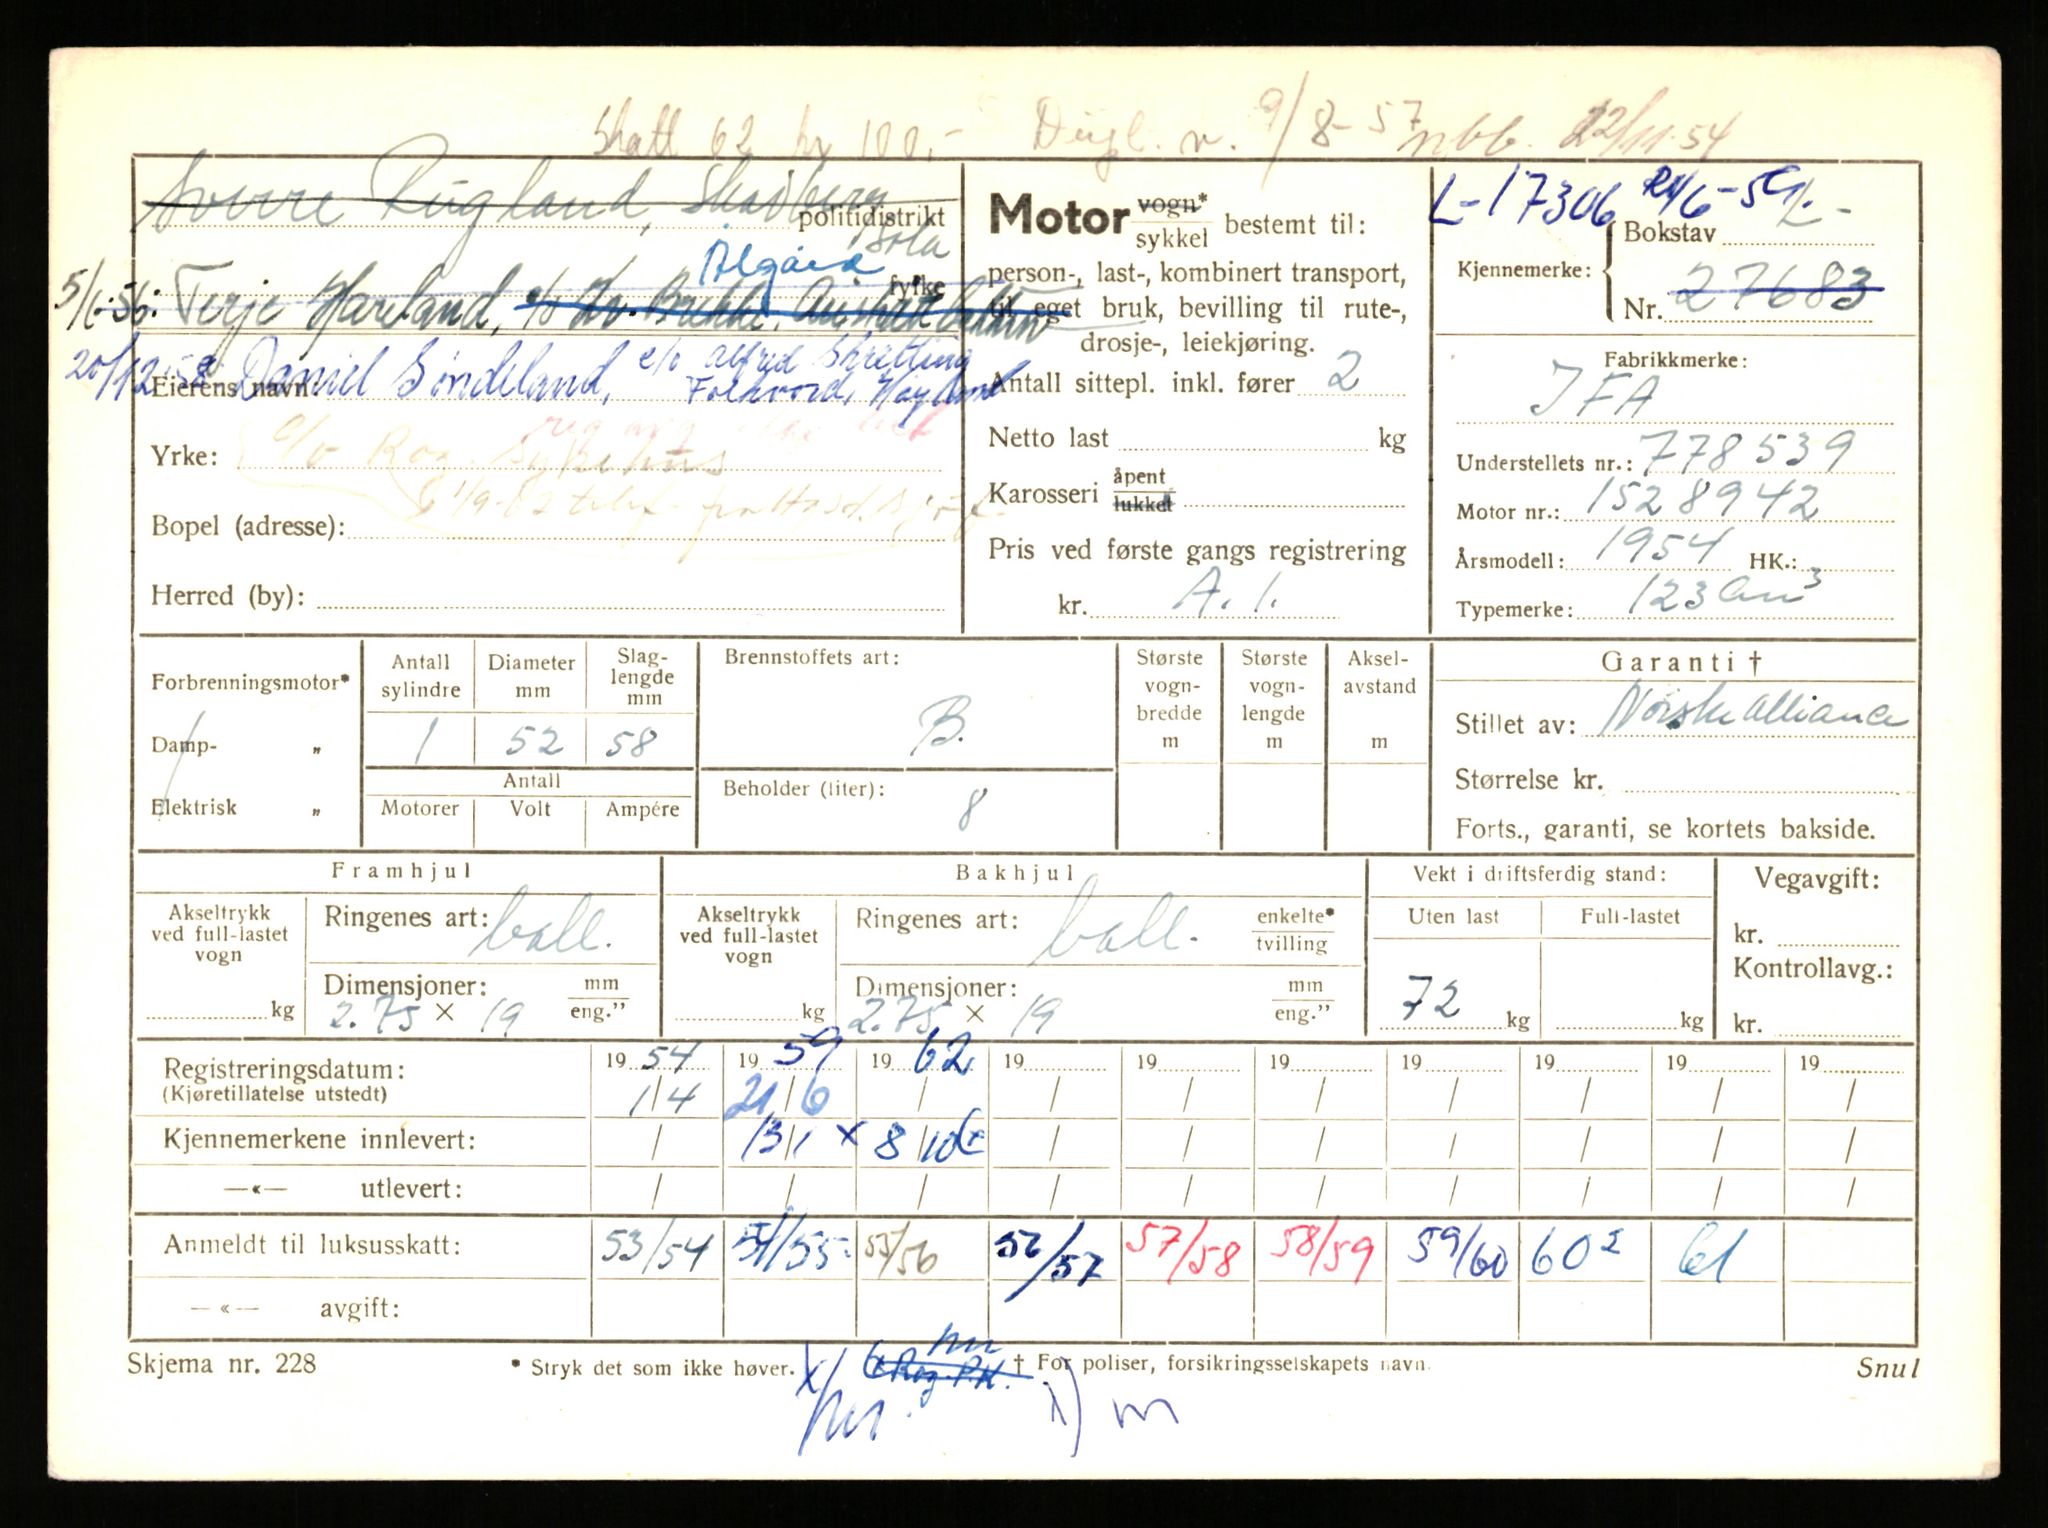 Skatt 62 kr 100,- Dugl. v. 9/8-57 nbb. 22/11-54
Sverre Rugland, Skadberg
politidistrikt
Sola
Ålgård
fylke
5/1-56. Terje Hareland, c/o
20/12-58 Daniel Sindeland, c/o Alfred Skretting
Eierens navn: Folkvord, Høyland
Yrke: c/o Rog. sykehus
Bopel (adresse):
Herred (by):
Motor vogn* sykkel bestemt til:
person-, last-, kombinert transport,
til eget bruk, bevilling til rute-,
drosje-, leiekjøring.
Antall sittepl. inkl. fører 2
Netto last kg
Karosseri åpent lukket
Pris ved første gangs registrering
kr. A. 1.
L-17306
Kjennemerke: Bokstav L-
Nr. 27683
Fabrikkmerke:
IFA
Understellets nr.: 778539
Motor nr.: 1528942
Årsmodell: 1954 HK.:
Typemerke: 123 cm³
Forbrenningsmotor*
Damp- „
Elektrisk „
Antall sylindre 1
Diameter mm 52
Slaglengde mm 58
Antall
Motorer Volt Ampére
Brennstoffets art: B.
Beholder (liter): 8
Største vognbredde m
Største vognlengde m
Akselavstand m
Garanti †
Stillet av: Norske Alliance
Størrelse kr.
Forts., garanti, se kortets bakside.
Framhjul
Akseltrykk ved full-lastet vogn kg
Ringenes art: ball.
Dimensjoner: mm eng."
2.75 × 19
Bakhjul
Akseltrykk ved full-lastet vogn kg
Ringenes art: ball. enkelte* tvilling
Dimensjoner: mm eng."
2.75 × 19
Vekt i driftsferdig stand:
Uten last Full-lastet
72 kg kg
Vegavgift:
kr.
Kontrollavg.:
kr.
Registreringsdatum: 19 54 19 59 19 62 19 19 19 19 19 19 19
(Kjøretillatelse utstedt) 1/4 21/6 / / / / / / / /
Kjennemerkene innlevert: / 13/1 x 8/10 / / / / / / /
—«— utlevert: / / / / / / / / / /
Anmeldt til luksusskatt: 53/54 54/55 55/56 56/57 57/58 58/59 59/60 60² 61
—«— avgift:
Skjema nr. 228 * Stryk det som ikke høver. x/ † For poliser, forsikringsselskapets navn. Snul